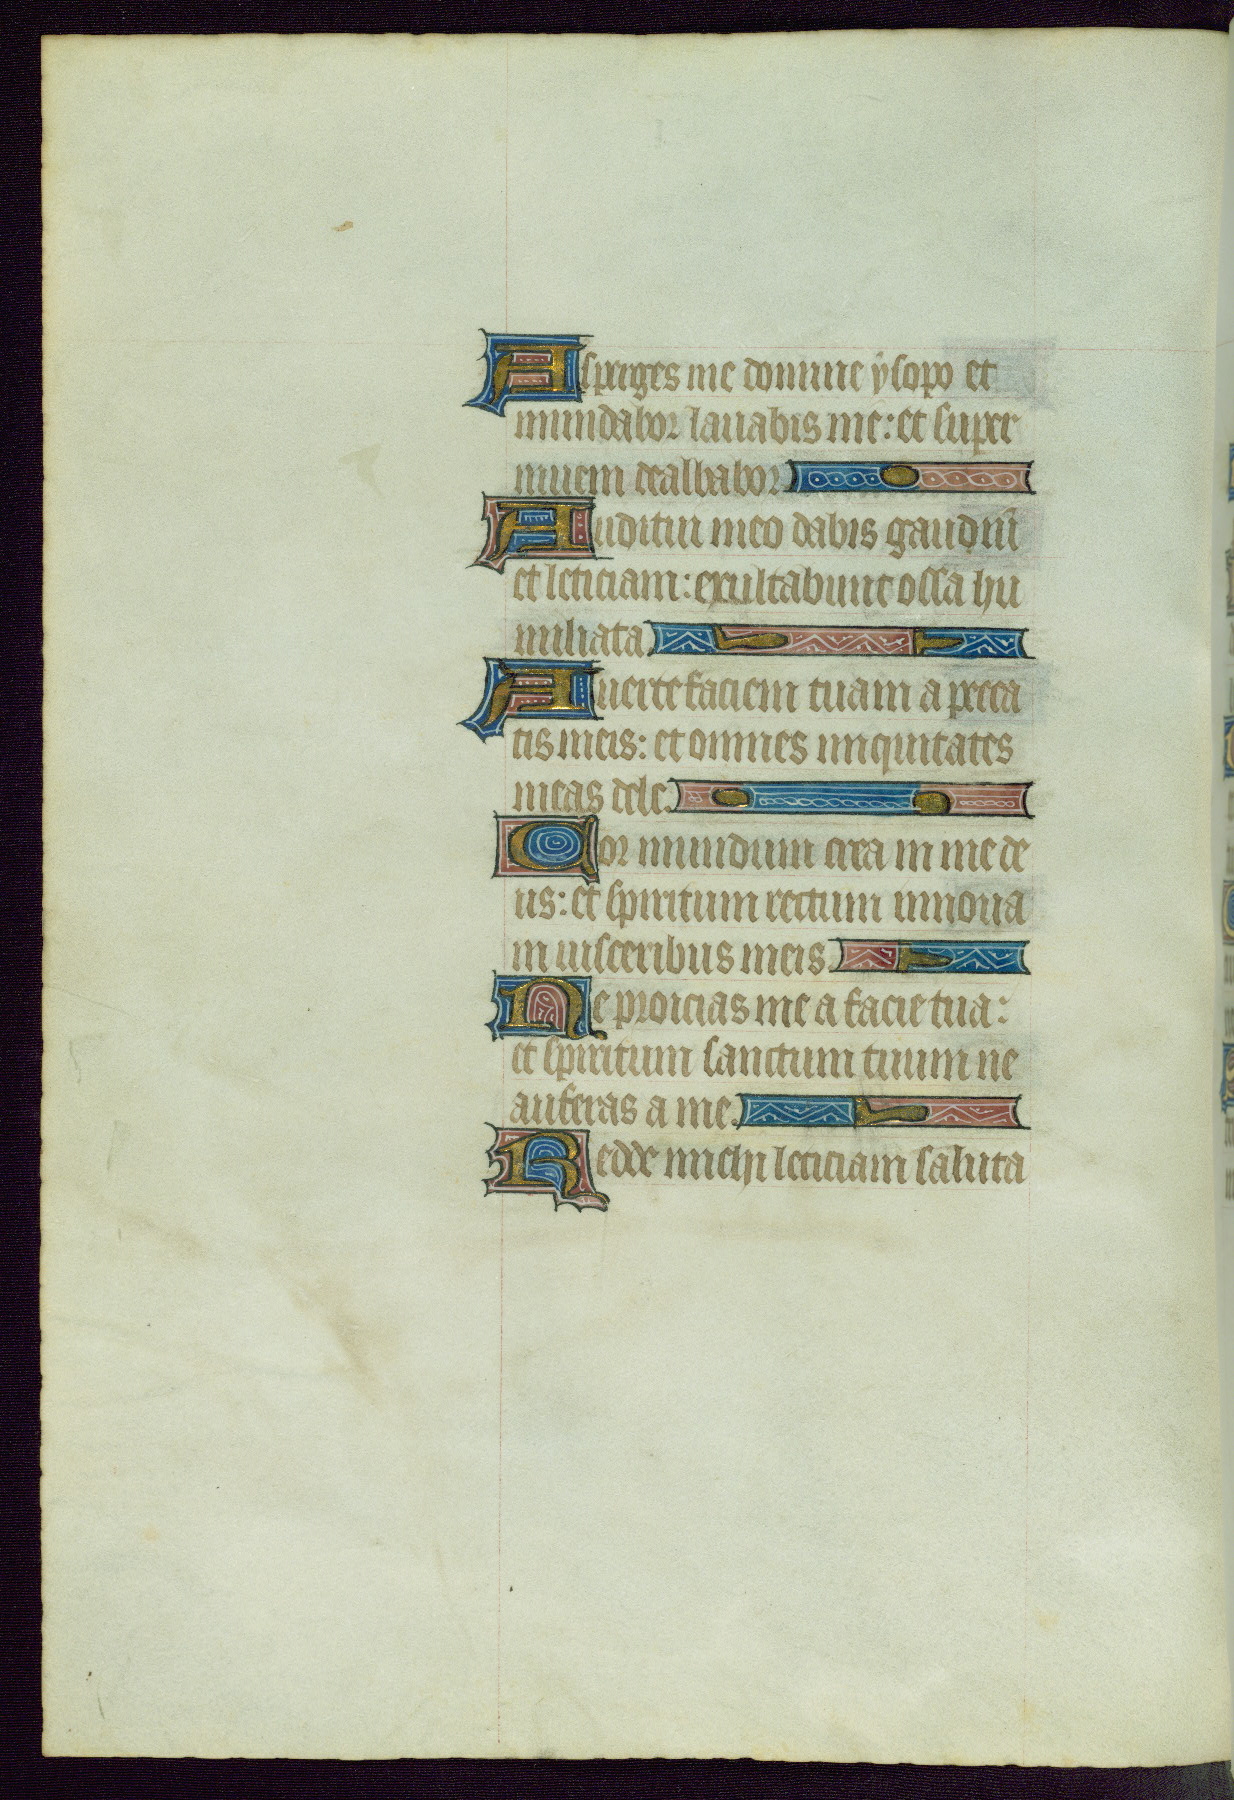 Asperges me domine ysopo et
mundabor lauabis me: et super
niuem dealbabor.
Auditui meo dabis gaudiu͂
et leticiam: exultabunt ossa hu
miliata.
Auerte faciem tuam a pecca
tis meis: et omnes iniquitates
meas dele.
Cor mundum crea in me de
us: et spiritum rectum innoua
in uisceribus meis.
Ne proicias me a facie tua:
et spiritum sanctum tuum ne
auferas a me.
Redde michi leticiam saluta